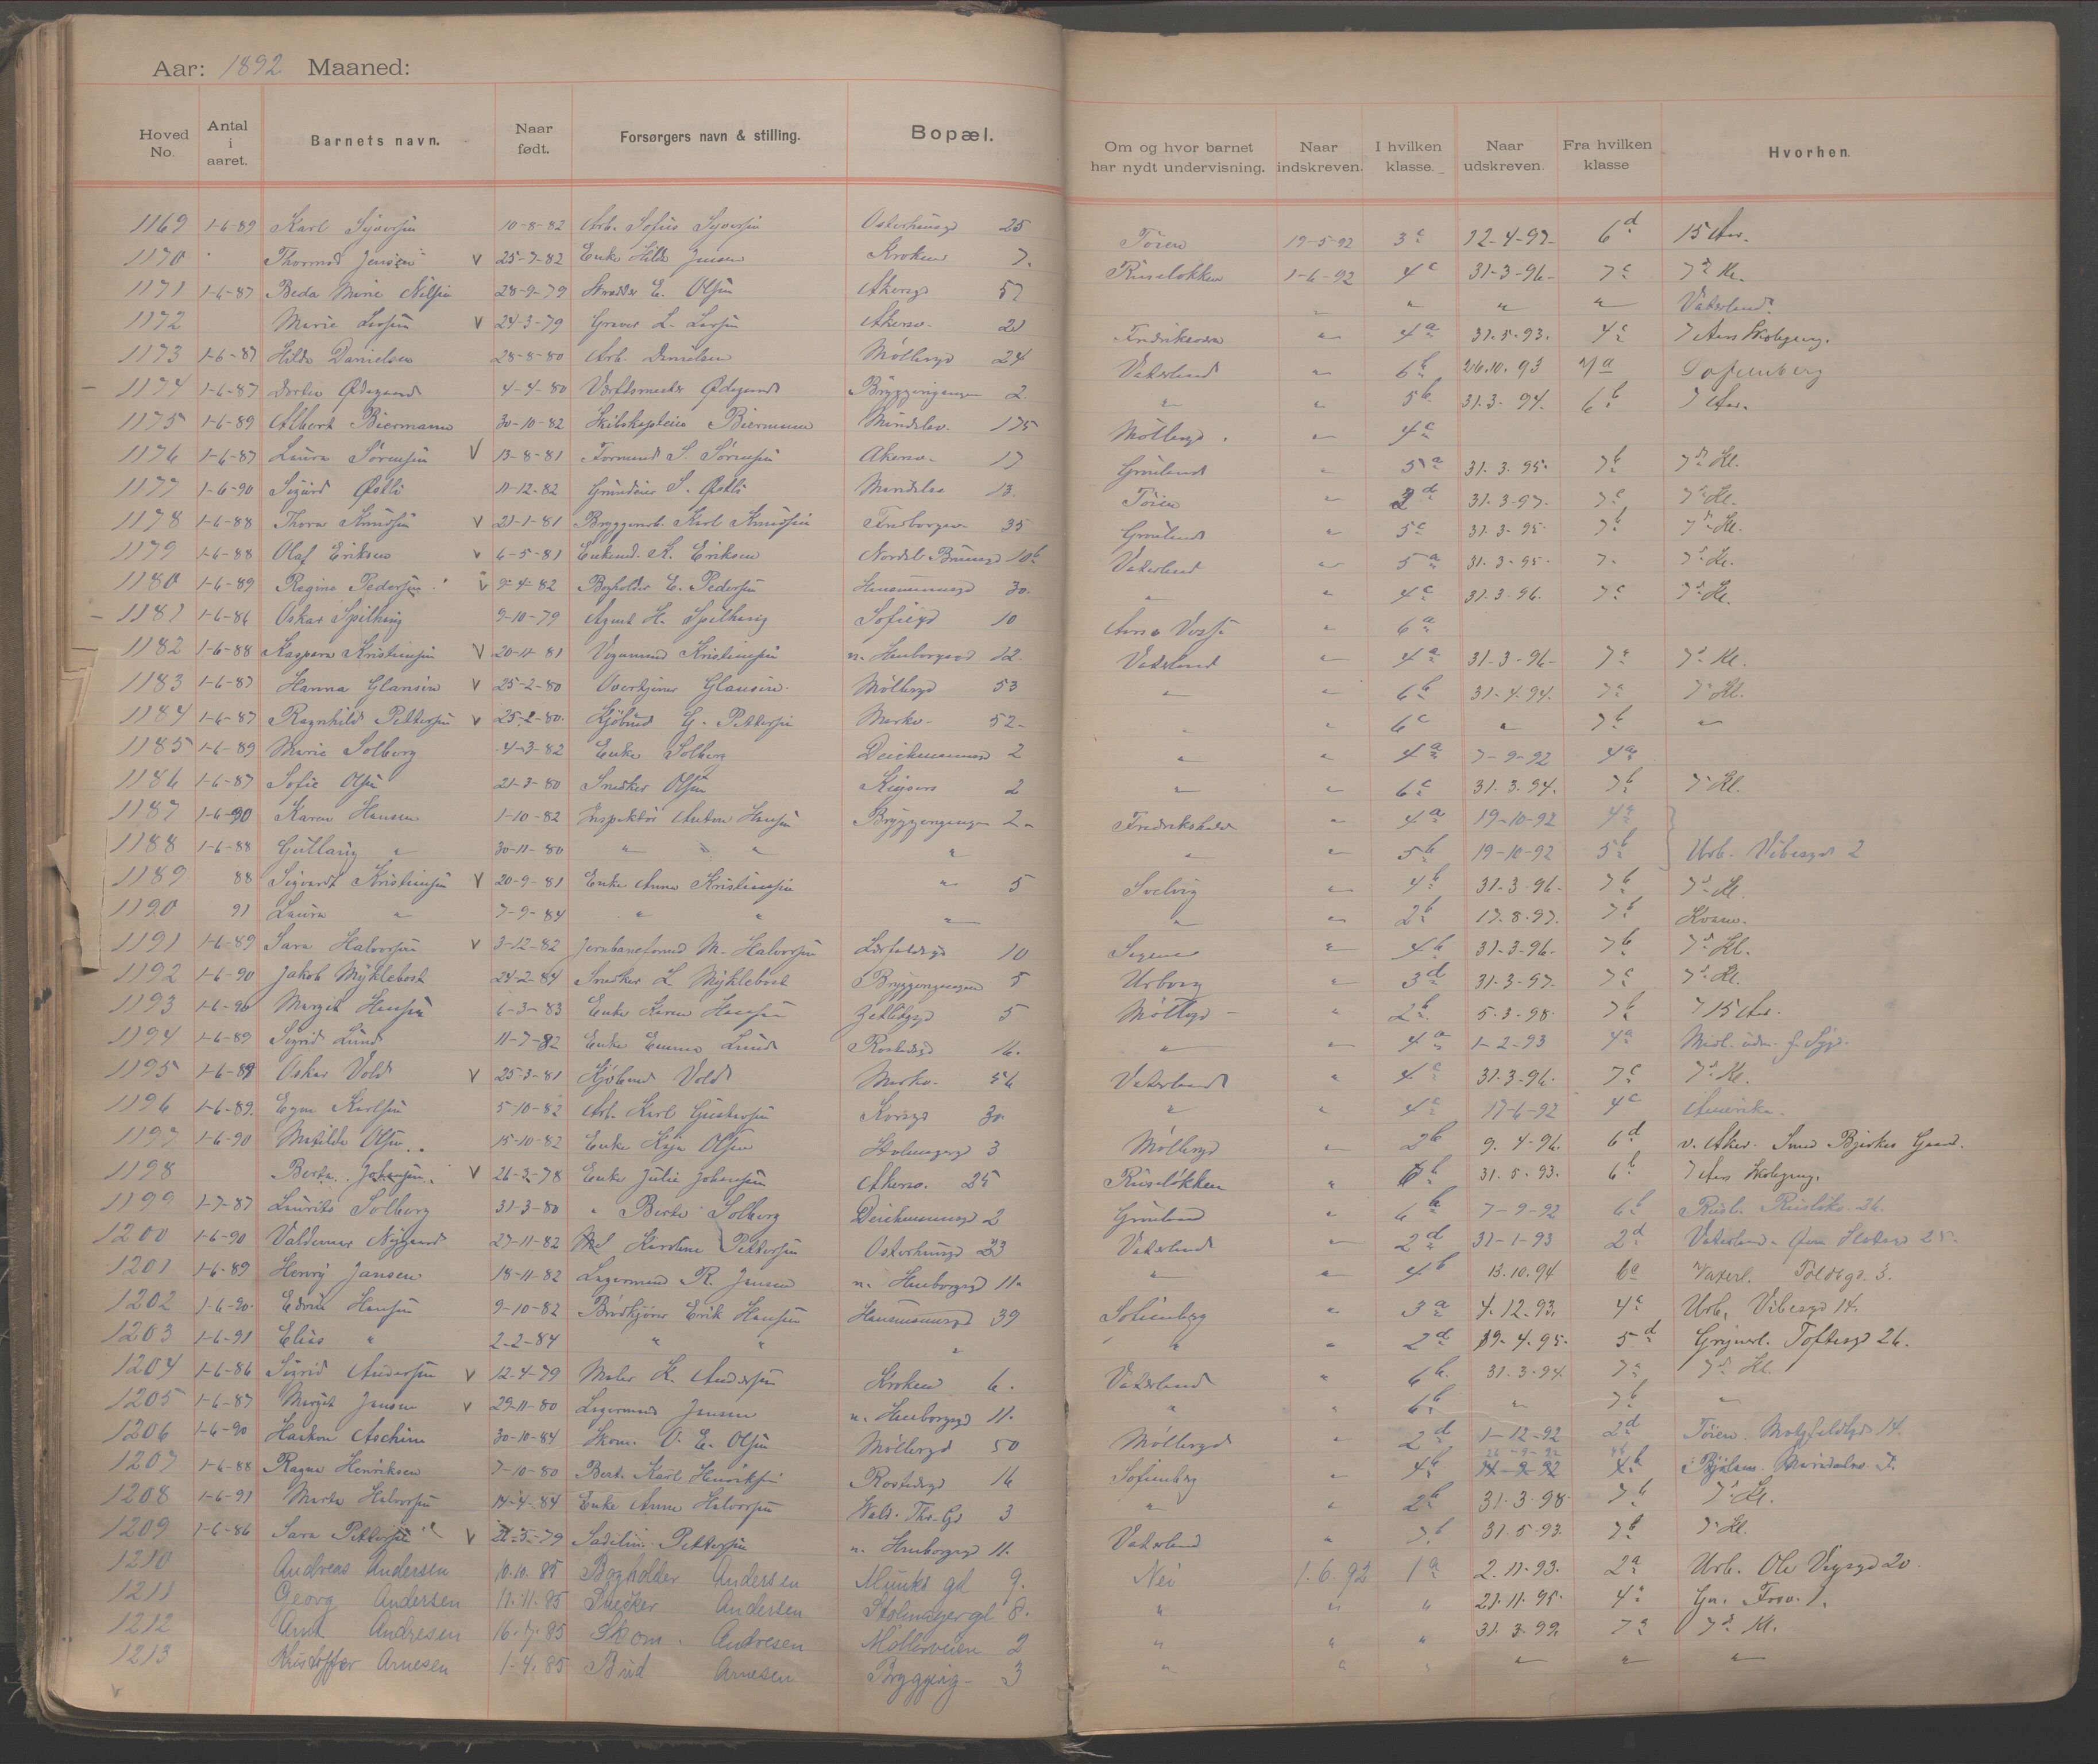 Aar: 1892 Maaned:
Hoved No. Antal i aaret. Barnets navn. Naar født. Forsørgers navn & stilling. Bopæl. Om og hvor barnet har nydt undervisning. Naar indskreven. I hvilken klasse. Naar udskreven. Fra hvilken klasse Hvorhen.
1169 1-6-89 Karl Syversen 10-8-82 Arb. Sofus Syversen Osterhausgd 25 Töien 19-5-92 3c 12-4-97 6d 15 Aar.
1170 Thormod Jensen v 25-7-82 Enke Hilda Jensen Kroken 7. Ruseløkken 1-6-92 4c 31-3-96 7c 7d Kl.
1171 1-6-87 Beda Marie Nilsen 28-9-79 E. Olsen Akersgd 57 " " " Vaterland
1172 Marie Larsen v 24-3-79 Graver L. Larsen Akersv. 20 " 4a 31.5.93. 4c 7 Aars Skolegang.
1173 1-6-87 Hilda Danielsen 28-8-80 Arb. Danielsen Møllergd 24 Vaterland " 6b 26.10.93 7a Sofienberg
1174 1-6-87 Ødegaard 4-4-80 Værftsmester Ødegaard Bryggerigangen 2. " " 5b 31.3.94. 6b 7 Aar.
1175 1-6-89 Albert Biermann 30-10-82 Skibskaptein Biermann 175 Møllergd. " 4c
1176 1-6-87 Laura Sørensen V 13-8-81 Formand S. Sørensen Akersv. 17 Grønland " 5a 31.3.95. 7b 7d Kl.
1177 1-6-90 Sigurd Østli 11-12-82 S. Østli 13. Töien " 3d 31.3-97. 7c 7d Kl.
1178 1-6-88 Thora Knudsen v 21-1-81 Karl Knudsen 35 Grønland " 5c 31.3-95. 7b 7d Kl.
1179 1-6-88 Olaf Eriksen v 6-5-81 K. Eriksen Nordal Brunsgd 10b Vaterland " 5a 31.3-95. 7. 7d Kl.
1180 1-6-89 Regine Pedersen v 9-4-82 Bogholder E. Pedersen Hausmannsgd 30. " " 4c 31.3.96. 7c 7d Kl.
1181 1-6-86 Oskar Spilhaug 9-10-79 Agent H. Spilhaug Sofiegd 10 " 6a
1182 1-6-88 Kaspara Kristiansen V 20-11-81 Vognmand Kristiansen 12. Vaterland " 4a 31-3-96- 7c 7d Kl.
1183 1-6-87 Hanna Glansén v 25-2-80 Glansén Møllergd 53 " " 6b 31.4.94. 7c 7d Kl.
1184 1-6-87 Ragnhild Pettersen v 25-2-80. Kjøbmd G. Pettersen Markv. 52- " " 6c " 7b "
1185 1-6-89 Marie Solberg 4-3-82 Enke Solberg Deichmannsgd 2 " " 4a 7-9-92 4a
1186 1-6-87 Sofie Olsen 21-3-80 Snedker Olsen Keysers 2 " " 6c 31.3.94. 7b 7d Kl.
1187 1-6-90 Karen Hansen 1-10-82 Inspektör Anton Hansen Bryggerigangen 2- Fredrikshald " 4a 19-10-92 4c
1188 1-6-88 Gudlaug " 30-11-80 " " " " " " 5b 19-10-92 5b Urb. Vibesgd 2
1189 88 Sigvardt Kristiansen V 20-9-81 Enke Anna Kristiansen " 5 Svelvig " 4b 31-3-96- 7b 7d Kl
1190 91 Laura " 7-9-84 " " " " " 2b 17.8.97. 7b
1191 1-6-89 Sara Halvorsen v 3-12-82 M. Halvorsen 10 " 4b 31-3-96- 7b 7d Kl.
1192 1-6-90 Jakob Myklebost 24-2-84 Snedker L. Myklebost Bryggerigangen 5 Urborg " 3d 31-3-97. 7c 7d Kl.
1193 1-6-90 Margit Hansen 6-3-83 Enke Karen Hansen Zetlitzgd 5 Møllergd " 2b 5-3-98. 7b 7 15 Aar.
1194 1-6-89 Sigrid Lund 11-7-82 Enke Emma Lund Rostedsgd 16. " " 4a 1-2-93 4a Midl. udm. f. Sygd.
1195 1-6-89 Oskar Vold v 25-3-81 Kjøbmd Vold Markv. 56 Vaterland " 4c 31.3-96. 7c 7d Kl.
1196 1-6-89. Karlsen 5-10-82 Arb. Karl Gustavsen Korsgd 30 " " 4c 17-6-92 4c Amerika.
1197 1-6-90 Matilda Olsen 15-10-82 Enke Olsen 3 Møllergd " 2b 9.4-96. 6d v. Aker.
1198 Berta Johansen v 26-3-78 Enke Julie Johansen Akersv. 25 Ruseløkken " 6b 31.5.93. 6b 7 Aars Skolegang.
1199 1-7-87 Laurits Solberg 31-3-80 " Berta Solberg Deichmannsgd 2 Grønland " 6b 7-9-92 6b Rusl. Rusløkv. 26.
1200 1-6-90 Valdemar Nygaard 27-11-82 Karoline Pettersen Osterhausgd 23 Vaterland " 2d 31-1-93 2d Vaterland.
1201 1-6-89 Henry Jansen 18-11-82 Lagermand R. Jansen 11. " " 4b 13.10.94 6a Vaterl. Toldbgd. 3.
1202 1-6-90. Edvin Hansen 9-10-82 Brødkjører Erik Hansen Hausmannsgd 39 Sofienberg " 3a 4.12.93. 4c Urb. Vibesgd 14.
1203 1-6-91 Elias " 2-2-84 " " " " " 2d 19-4.95. 5d Grünerl. Toftesgd 26.
1204 1-6-86 Sigrid Andersen v 12-4-79 Maler K. Andersen Kroken 6. Vaterland " 6b. 31.3.94. 7c 7d Kl.
1205 1-6-87 Margit Jansen v 29-11-80 Lagermand Jansen 11. " " 6b " 7b "
1206 1-6-90 Haakon Aschim 30-10-84 Skom. O. E. Olsen Møllergd 50 Møllergd " 2d 1-12-92 2d Töien. Motzfeldtgd 14.
1207 1-6-88 Ragna Henriksen 7-10-80 Karl Henriksen Rostedsgd 16 Sofienberg " 4b 4b
1208 1-6-91 Marta Halvorsen 14-4-84 Enke Anna Halvorsen Wald. Thr. Gd 3 " " 2b 31.3.98. 7b 7d Kl.
1209 1-6-86 Sara Pettersen v 21-3-79 Pettersen 11. Vaterland " 7b 31.5.93. 7b 7d Kl.
1210 Andreas Andersen 10.10.85 Bogholder Andersen Munks gd 9. Nei 1.6.92 1a 2.11.93. 2a Urb. Ole Vigsgd 20.
1211 Georg Andersen 11.11.85 Snedker Andersen Stolmager gd 8. " " " 21.11.95. 4c
1212 Arnt Andresen 16.7.85 Skom. Andresen Møllerveien 2 " " " 31.3.99. 7c 7d Kl.
1213 Kristoffer Arnesen 1.4.85 Bud Arnesen Bryggerig- 3 " " " " " "